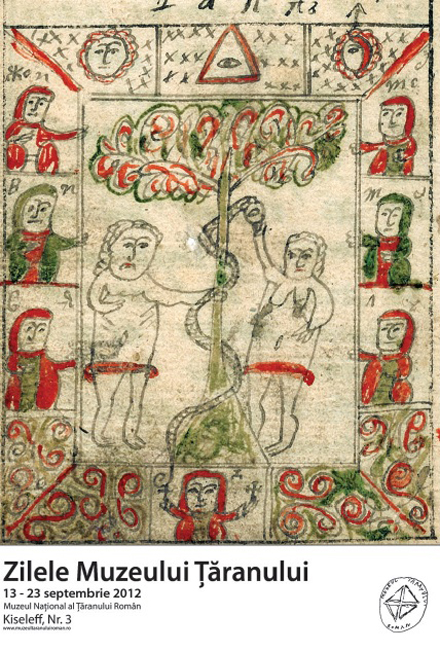 Zilele Muzeului Țăranului
13 - 23 septembrie 2012
Muzeul Național al Țăranului Român
Kiseleff, Nr. 3
www.muzeultaranuluiroman.ro
MUZEUL ȚĂRANULUI ROMÂN